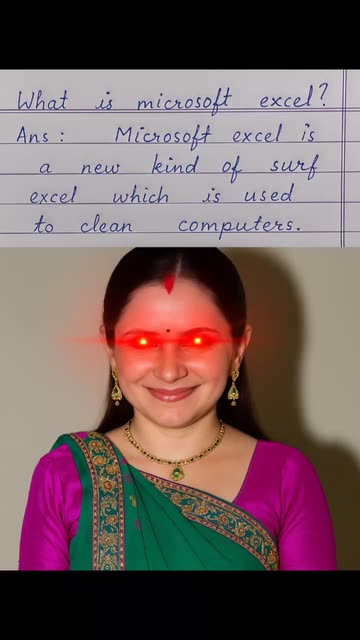 What is microsoft excel?
Ans : Microsoft excel is
a new kind of surf
excel which is used
to clean computers.